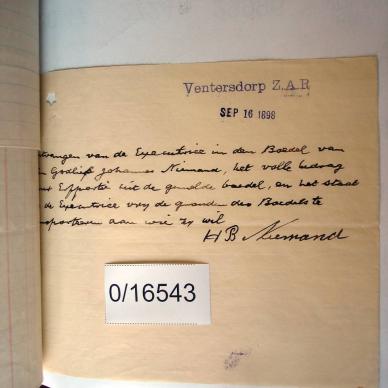 Ventersdorp Z.A.R
SEP 16 1898
ntvangen van de Executrice in den Boedel van
Godlief Johannes Niemand, het volle bedrag
uit de gemelde boedel, en het staat
de Executrice vry de gronden des Boedels te
nsporteeren aan wie zy wil
H B Niemand
0/16543